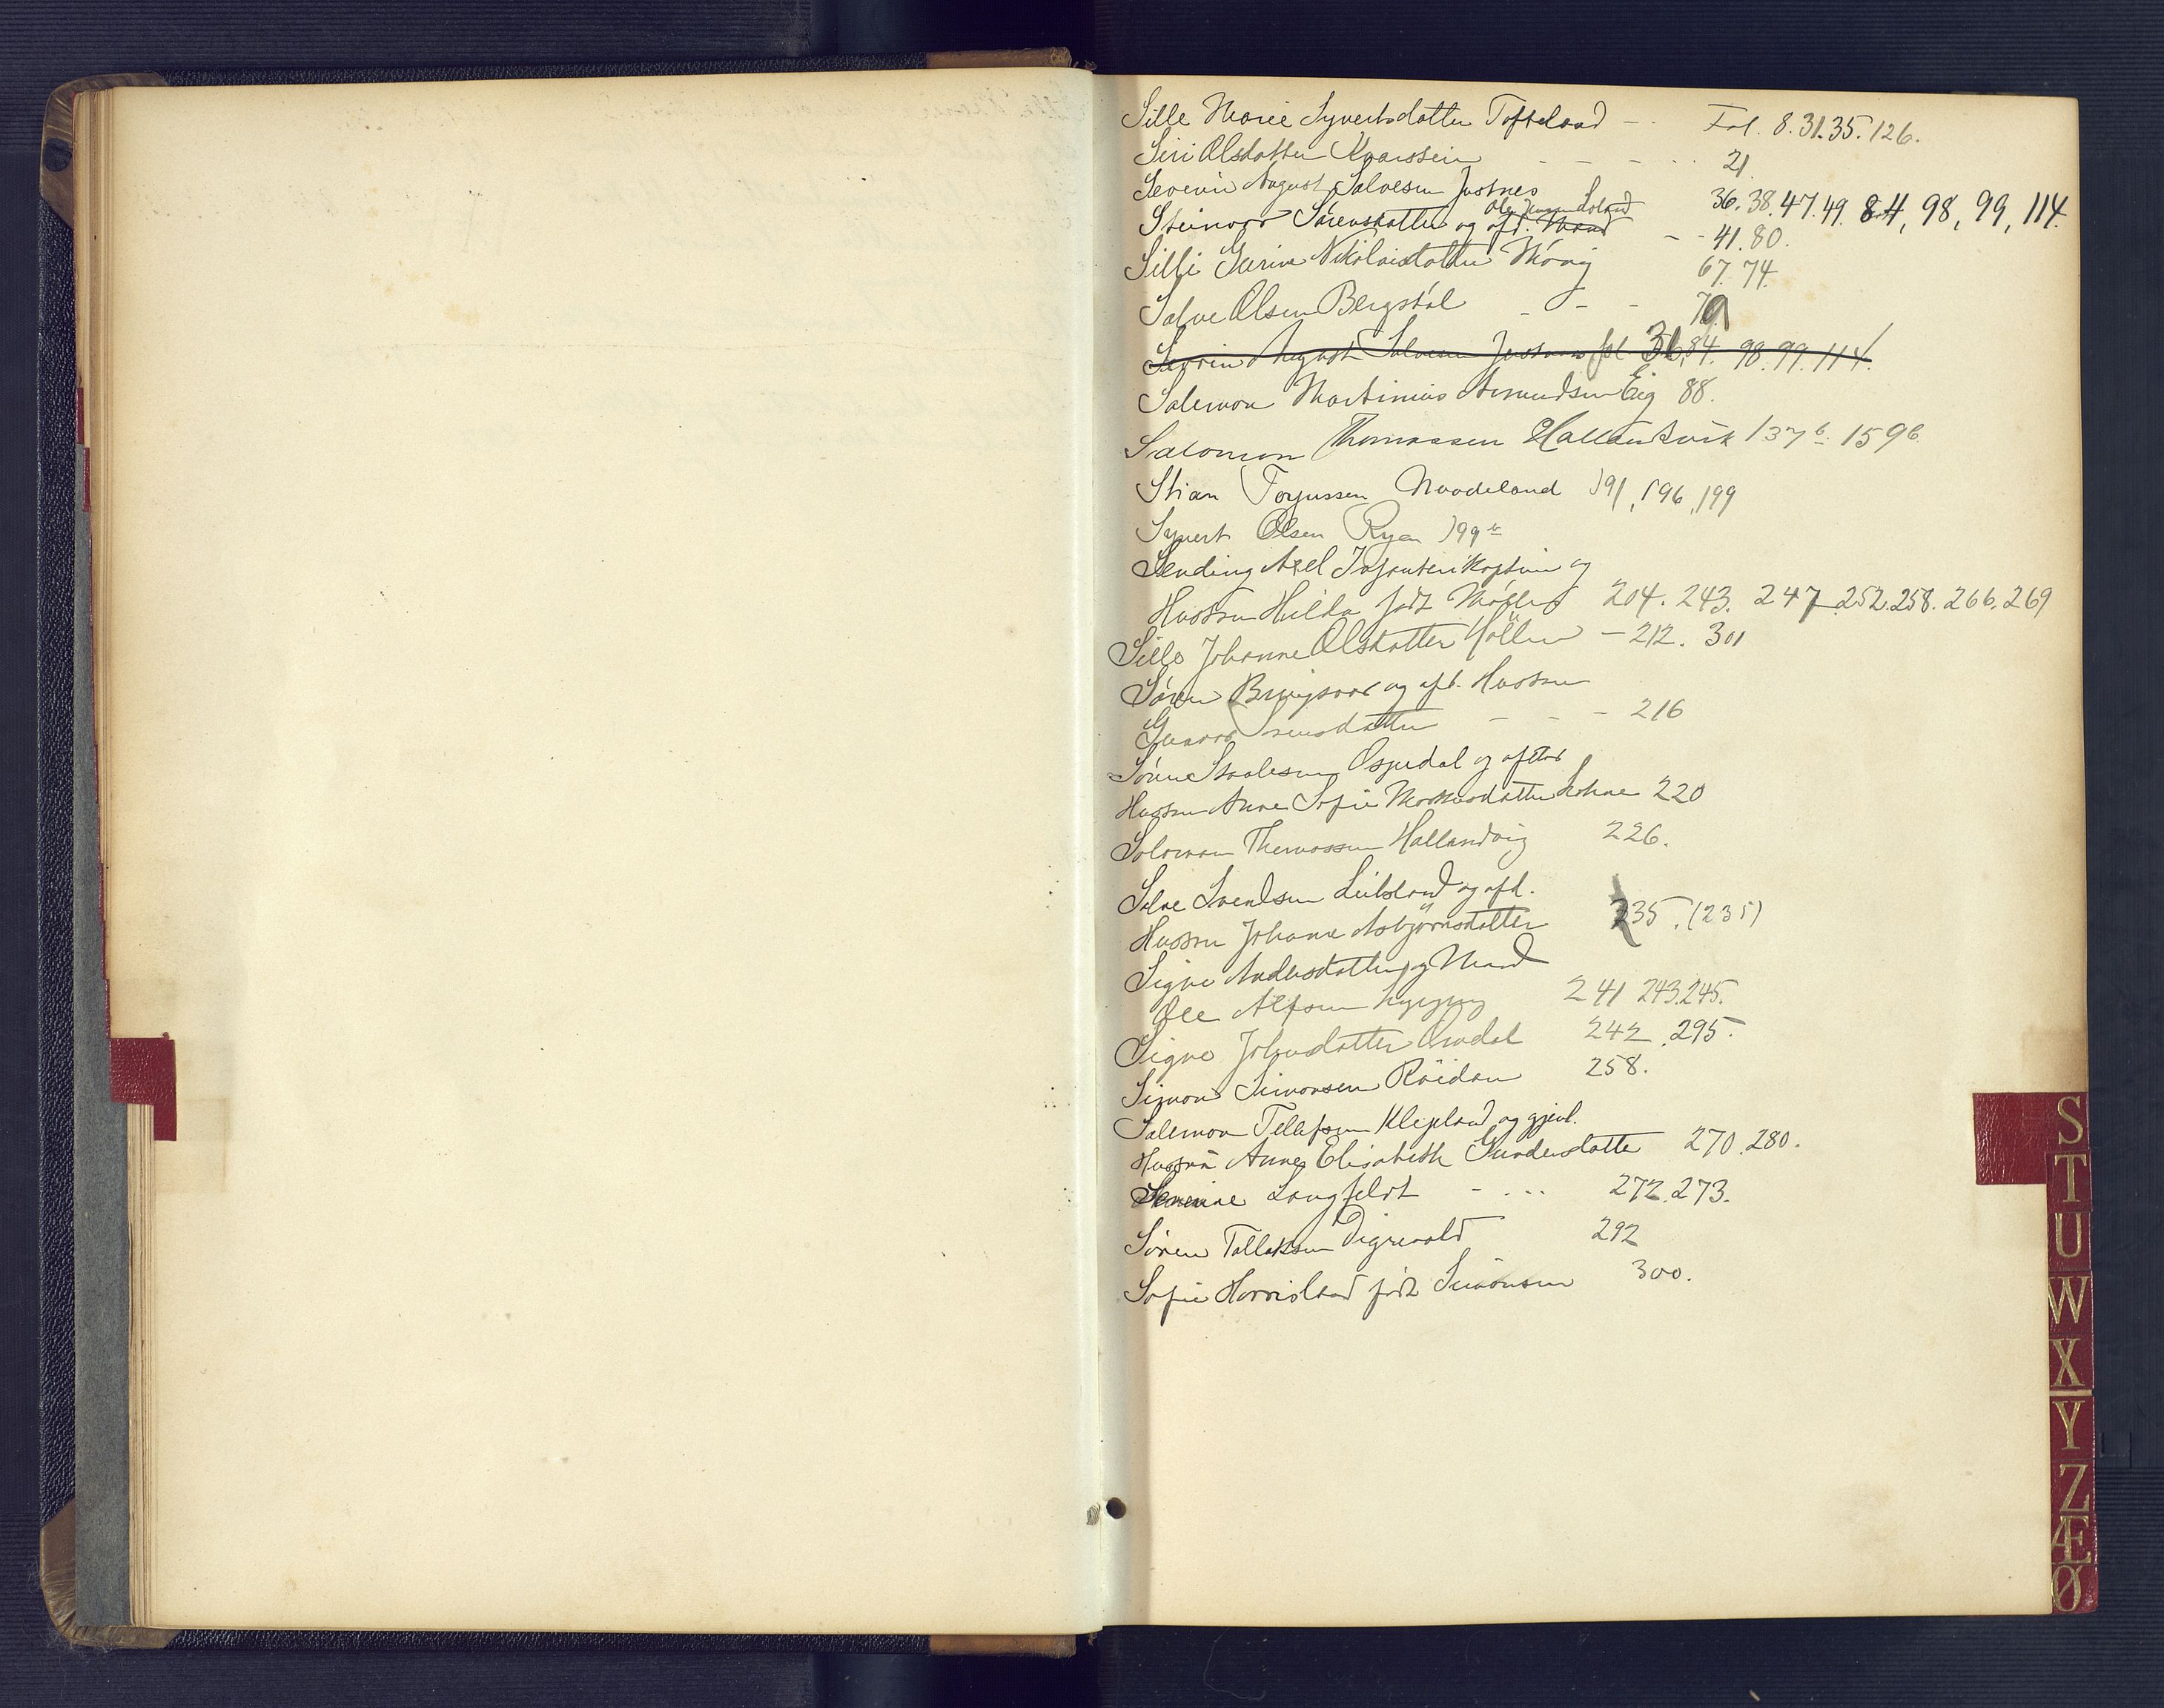 Sille Marie Syvertsdatter Tofteland - - Fol. 8. 31. 35. 126.
Siri Olsdatter Kvarstein - - - - 21
Severin August Salvesen Justnes 36. 38. 47. 49. 84, 98, 99, 114.
Steinora Sørensdatter og afd. Mand - - 41. 80.
Sille Gurine Nikolaisdatter 67. 74.
Salve Olsen Bergstøl - - - 79
Severin August Salvesen Justnes fol 36, 84. 98. 99. 114.
Salemon Martinius Asmundsen Eeg 88.
Salomon Thomassen Hallandsvik 137b 159b
Stian Torjussen Naadeland 191, 196, 199
Syvert Olsen Ryen 199b
Sending Axel Infanterikaptein og
Hustru Hilda født Møller 204. 243. 247. 252. 258. 266. 269
Sille Johanne Olsdatter Höllen - 212. 301
Søren Bringsvor og afd. Hustru
Gunvor - - - 216
Søren Staalesen Ospedal og afdøde
Hustru Anne Sofie Markusdatter Lohne 220
Soloman Thomassen Hallandvig 226.
Salve Svendsen Leibsland og afd.
Hustru Johanne Asbjørnsdatter 235. (235)
Signe Andersdatter og Mand
Ole Alfsen 241 243. 245.
Signe Johnsdatter Omdal 242. 295.
Simon Simonsen Röidan 258.
Salemon Tellefsen Klepland og gjenl.
Hustru Anne Elisabeth Gundersdatte 270. 280.
Severine Langfeldt - . . . . 272. 273.
Søren Tallaksen Digrevold 292
Sofie Harrisland født Simonsen 300.
S
T
U
W
X
Y
Z
Æ
Ø